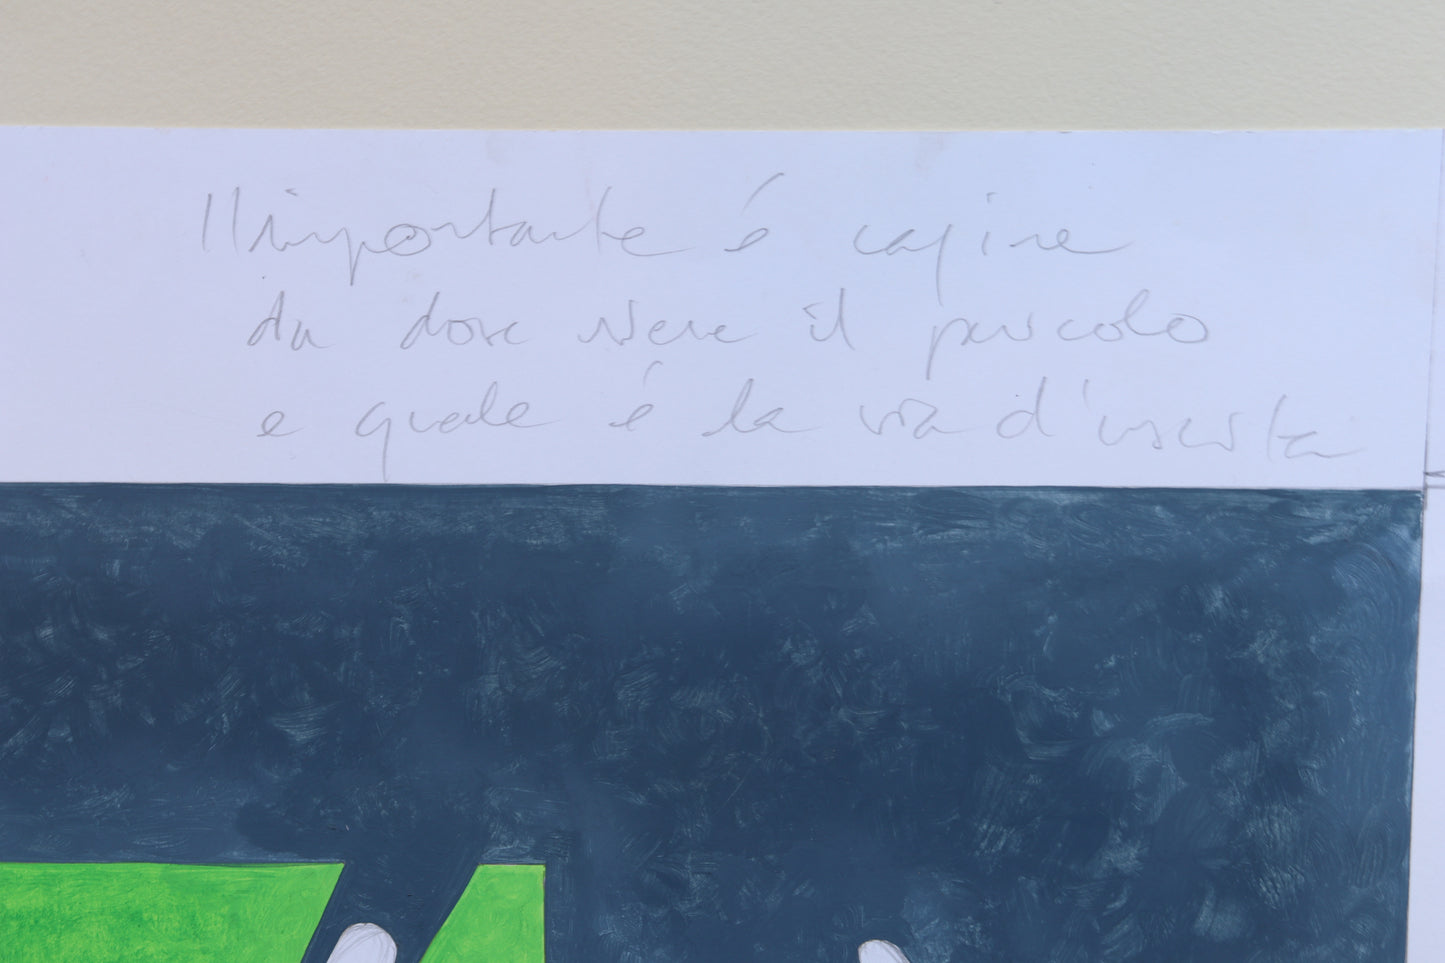 L'importante è capire
da dove viene il pericolo
e qual è la via d'uscita